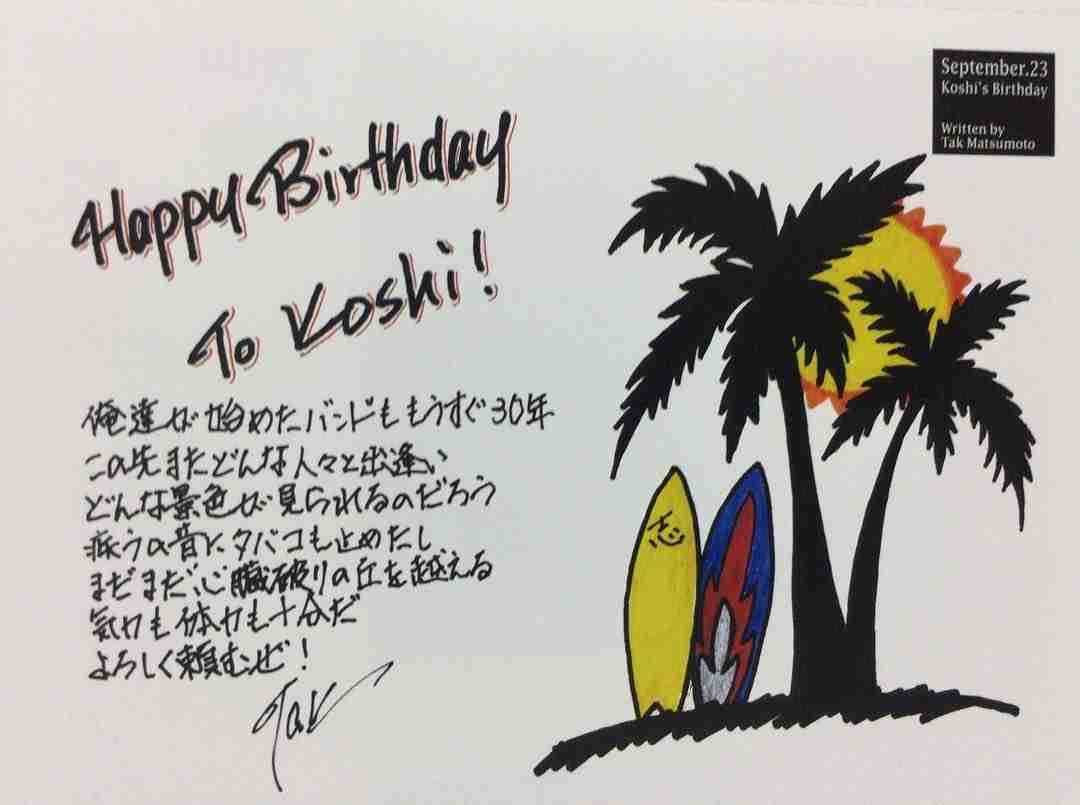 September.23
Koshi's Birthday
Written by
Tak Matsumoto
Happy Birthday
To Koshi!
俺達が始めたバンドももうすぐ30年
この先またどんな人々と出逢い
どんな景色が見られるのだろう
疾うの昔にタバコも止めたし
まだまだ心臓破りの丘を越える
気力も体力も十分だ
よろしく頼むぜ!
Tak